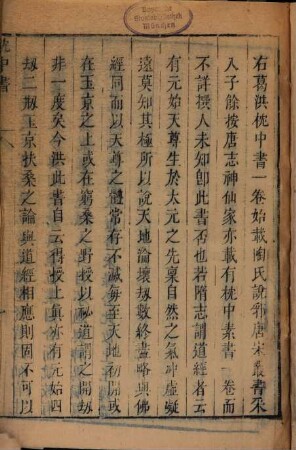 右葛洪枕中書一卷始載陶氏說郛唐宋叢書未
入子餘按唐志神仙家亦載有枕中素書一卷而
不詳撰人未知卽此書否也若隋志謂道經者云
有元始天尊生於太元之先稟自然之氣冲虛凝
遠莫知其極所以說天地淪壞劫數終盡略與佛
經同而以天尊之體常存不滅每至天地初開或
在玉京之上或在窮桑之野授以秘道謂之開劫
非一度矣今洪此書自云得授上眞亦有元始四
劫二
玉京扶桑之論與道經相應則固不可以
枕中書